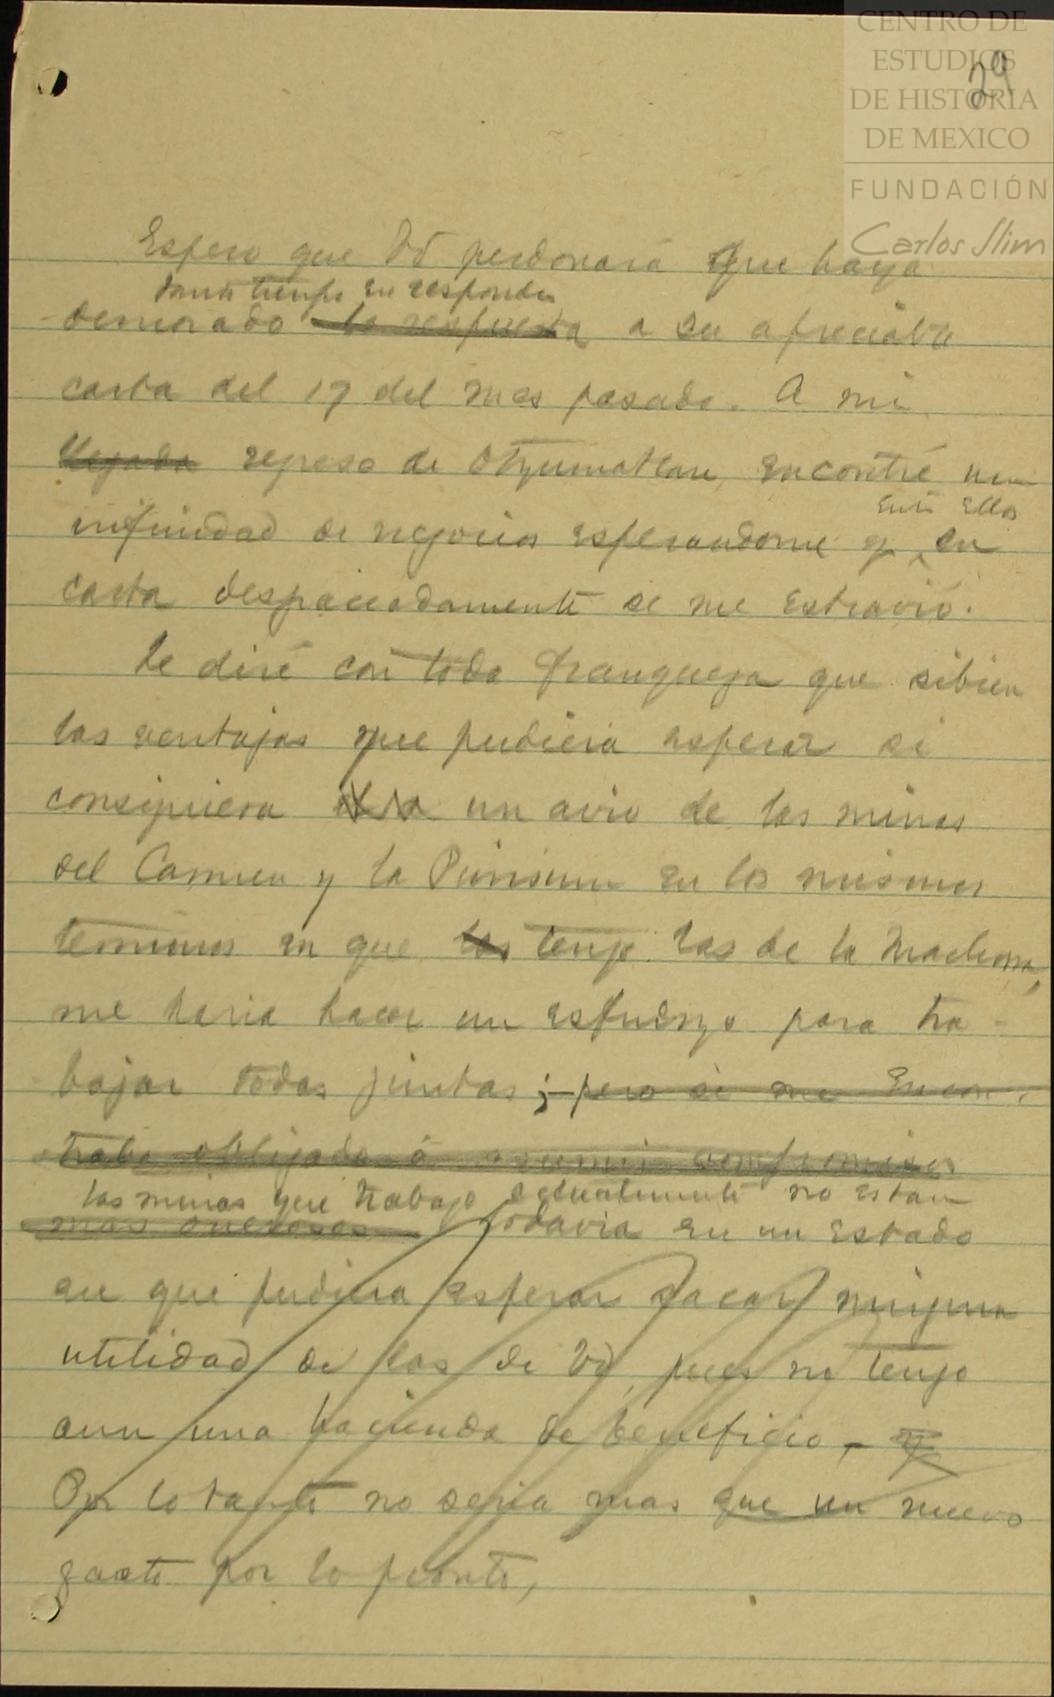 CENTRO DE
ESTUDIOS
DE HISTORIA
DE MEXICO
FUNDACIÓN
Carlos Slim
29
Espero que Vd perdonará que haya
tanto tiempo en responder
demorado la respuesta a su apreciable
carta del 17 del mes pasado. A mi
llegada regreso de Otzumatlan, encontré una
infinidad de negocios esperandome y
entre ellos
su
carta desgraciadamente se me estravió.
Le diré con toda franqueza que sibien
las ventajas que pudiera esperar si
consiguiera un avio de las minas
del Carmen y la Purisima en los mismos
terminos en que las tengo las de la
me haria hacer un esfuerzo para tra-
bajar todas juntas; pero si me encon-
traba obligado á asumir compromisos
las minas que trabajo actualmente no estan
mas onerosos todavia en un estado
en que pudiera esperar sacar ninguna
utilidad de las de Vd, pues no tengo
aun una hacienda de beneficio,
Por lo tanto no seria mas que un nuevo
gasto por lo pronto,